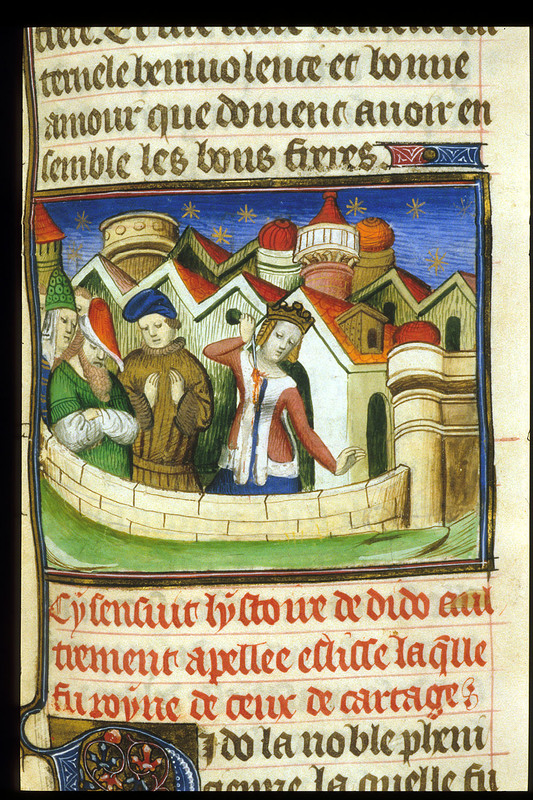 ternele benivolence et bonne
amour que doivent avoir en
semble les bons freres
Cy sensuit lystoire de dido aul
trement apellee elisse la q̄lle
fu royne de ceux de cartage
Dido la noble pheni
cienne la quelle fu